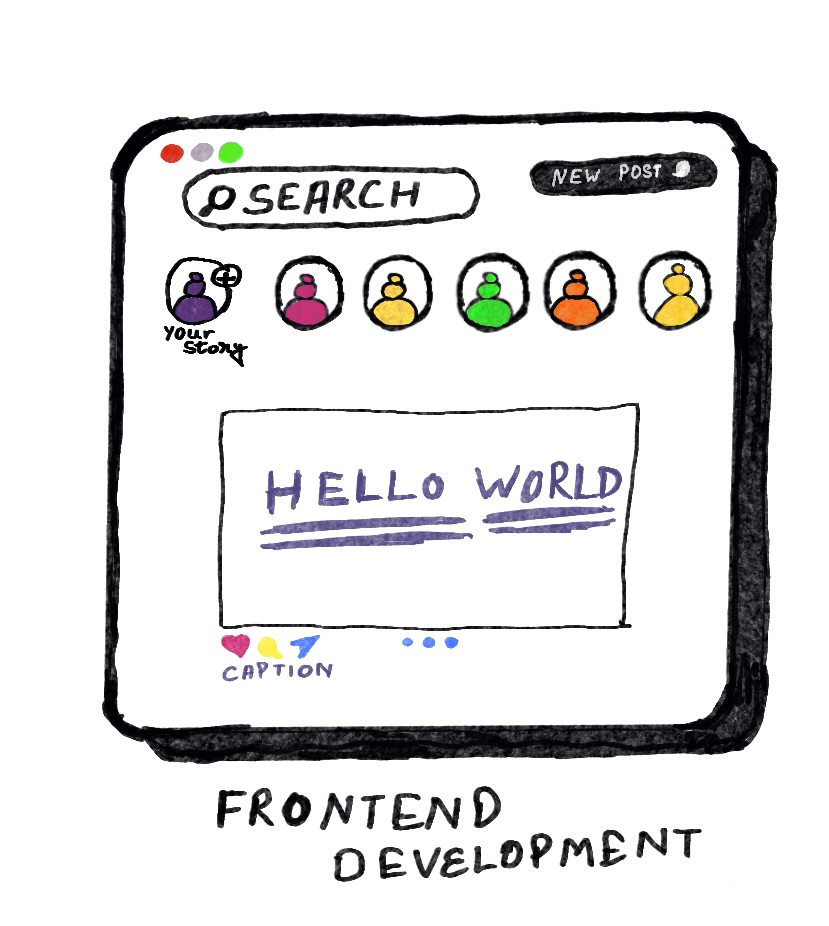 SEARCH
NEW POST
your
story
HELLO WORLD
CAPTION
FRONTEND
DEVELOPMENT